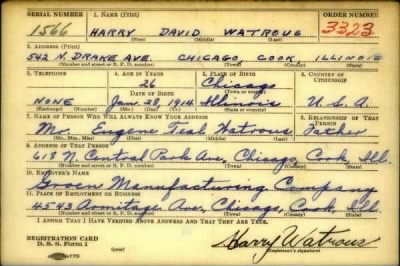 SERIAL NUMBER 1. NAME (Print) ORDER NUMBER
1566 HARRY DAVID WATROUS 3323
(First) (Middle) (Last)
2. ADDRESS (Print)
542 N. DRAKE AVE. CHICAGO COOK ILLINOIS
(Number and street or R. F. D. number) (Town) (County) (State)
3. TELEPHONE 4. AGE IN YEARS 5. PLACE OF BIRTH 6. COUNTRY OF CITIZENSHIP
26 Chicago
DATE OF BIRTH (Town or county)
NONE Jan. 28, 1914 Illinois U. S. A.
(Exchange) (No.) (Mo.) (Day) (Yr.) (State or country)
7. NAME OF PERSON WHO WILL ALWAYS KNOW YOUR ADDRESS 8. RELATIONSHIP OF THAT PERSON
Mr. Eugene Teal Watrous Father
(Mr., Mrs., Miss) (First) (Middle) (Last)
9. ADDRESS OF THAT PERSON
618 N. Central Park Ave, Chicago, Cook, Ill.
(Number and street or R. F. D. number) (Town) (County) (State)
10. EMPLOYER'S NAME
Manufacturing Company
11. PLACE OF EMPLOYMENT OR BUSINESS
4543 Armitage Ave, Chicago, Cook, Ill.
(Number and street or R. F. D. number) (Town) (County) (State)
I AFFIRM THAT I HAVE VERIFIED ABOVE ANSWERS AND THAT THEY ARE TRUE.
REGISTRATION CARD
D. S. S. Form 1 (over) Harry Watrous
(Registrant's signature)